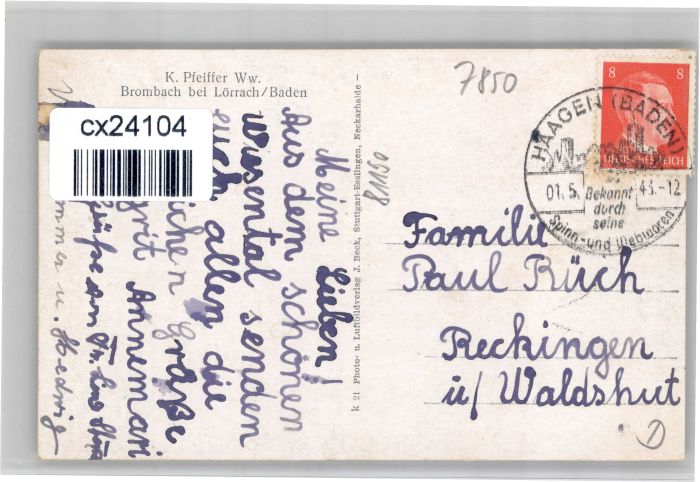 K. Pfeiffer Ww.
Brombach bei Lörrach/Baden
cx24104
7850
81150
8 8
DEUTSCHES REICH
HAAGEN (BADEN)
01.5. 43.-12
Bekannt
durch
seine
Spinn- und Webwaren
Meine Lieben!
Aus dem schönen
Wiesental senden
euch allen die
Grüße
Annemarie
Grüße
u. Hedwig
k 21 Photo- u. Luftbildverlag J. Beck, Stuttgart-Esslingen, Neckarhalde -
Familie
Paul Rüch
Reckingen
ü/ Waldshut
D